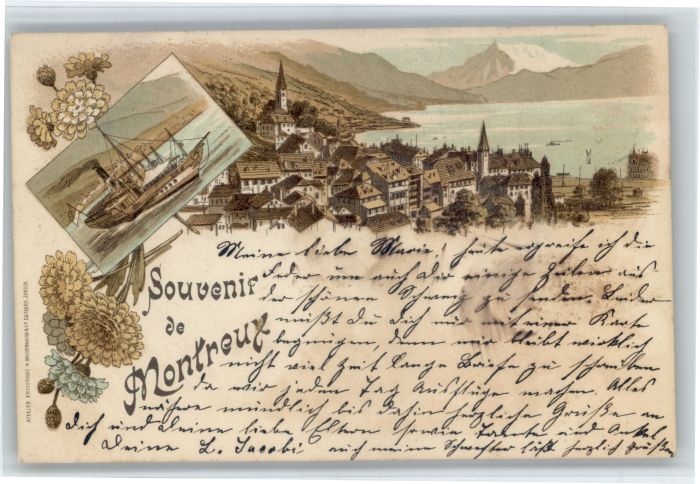 Souvenir
de
Montreux
Meine liebe Marie! heute ergreife ich die
Feder um auch Dir einige Zeilen aus
der schönen Schweiz zu senden. Leider
mußt Du Dich nur mit einer Karte
begnügen, denn mir bleibt wirklich
nicht viel Zeit lange Briefe zu schreiben
da wir jeden Tag Ausflüge machen. Alles
nähere mündlich bis dahin herzliche Grüße an
Dich und Deine liebe Eltern sowie Tante und Onkel
Deine L. Jacobi auch meine Schwester läßt herzlich grüßen